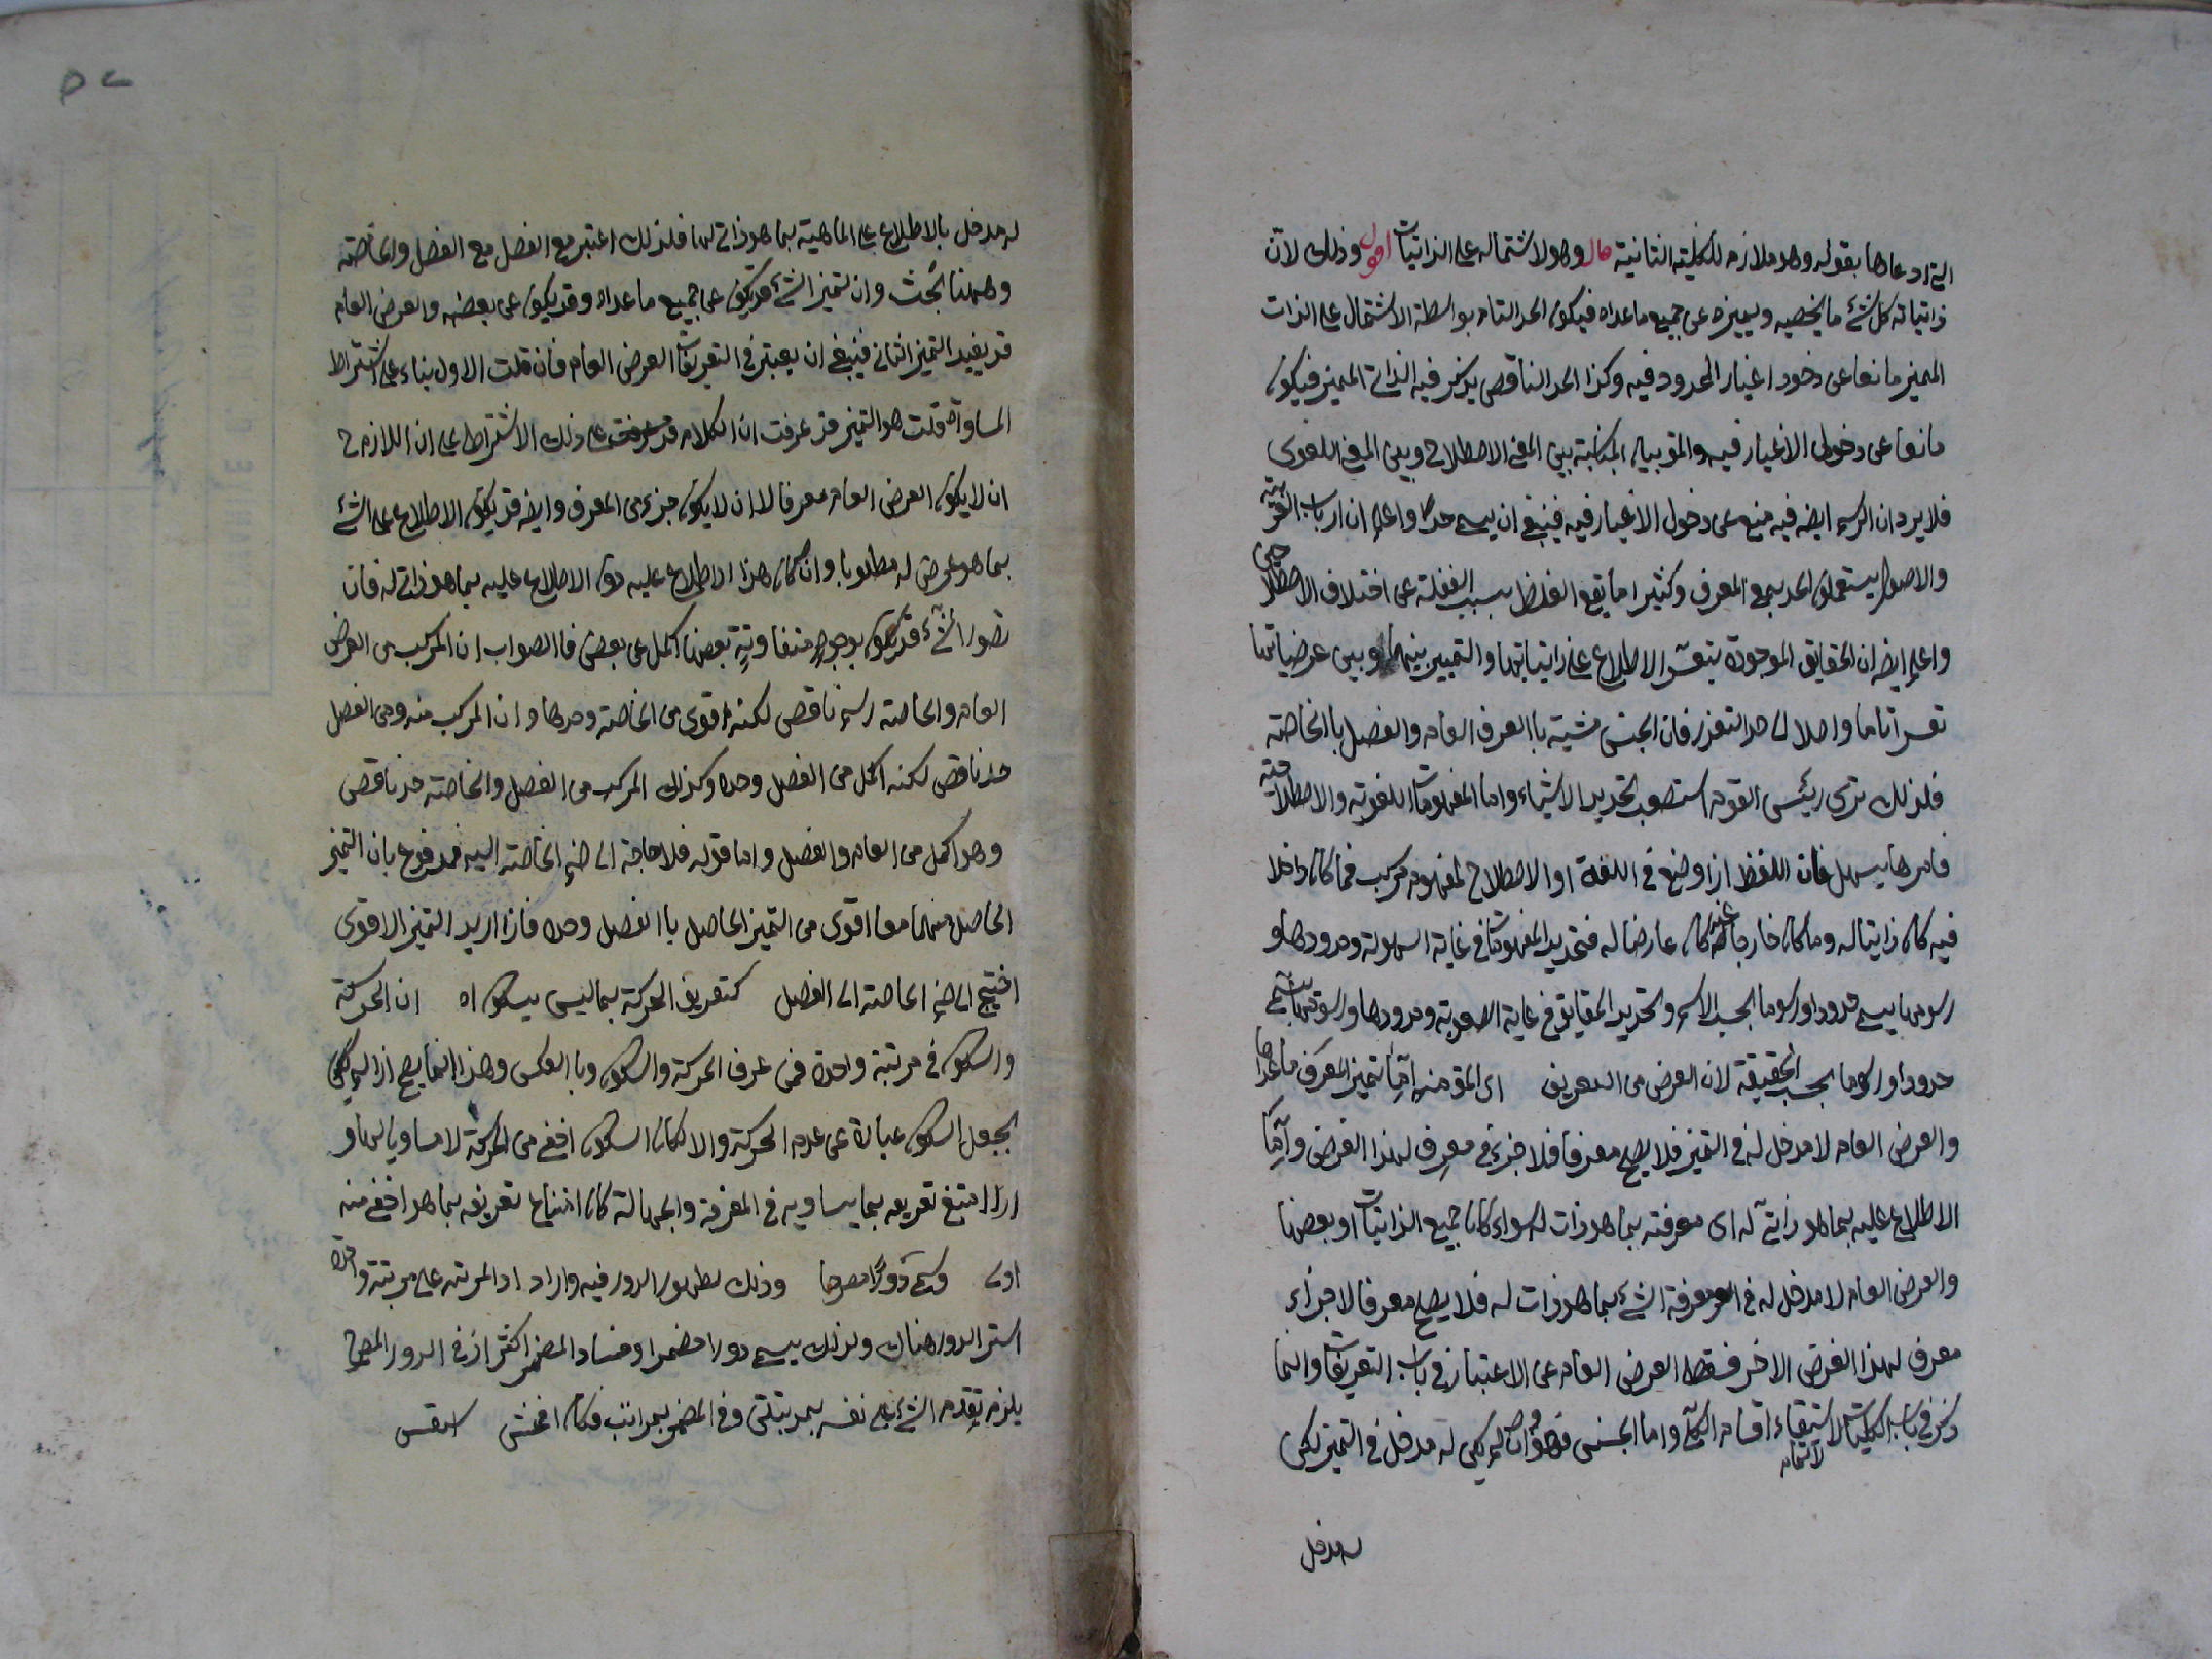 التي ادعاها بقوله وهو ملازم للكلية الثانية قال وهو لاشتماله على الذاتيات اقول وذلك لان
ذاتيات كل شئ ما يخصه ويميزه عن جميع ما عداه فيكون الحد التام بواسطة الاشتمال على الذات
المميز مانعا عن دخول اغيار المحدود فيه وكذا الحد الناقص يذكر فيه الذاتي المميز فيكون
مانعا عن دخول الاغيار فيه والمق بيان المناسبة بين المعنى الاصطلاحي وبين المعنى اللغوي
فلا يرد ان الرسم ايضه فيه منع عن دخول الاغيار فيه فينبغي ان يسمى حدا واعلم ان ارباب العربية
والاصول يستعملون الحد بمعنى المعرف وكثيرا ما يقع الغلط بسبب الغفلة عن اختلاف الاصطلاحين
واعلم ايضه ان الحقايق الموجودة يتعسر الاطلاع على ذاتياتها والتمييز بينها وبين عرضياتها
تعسرا تاما واصلا الى حد التعذر فان الجنس مشتبه باالعرض العام والفصل باالخاصة
فلذلك ترى رئيس القوم استصعب تحديد الاشياء واما المفهومات اللغوية والاصطلاحية
فامرها يسهل فان اللفظ اذا وضع في اللغة او الاصطلاح لمفهوم مركب فما كان داخلا
فيه كان ذاتيا له وما كان خارجا عنه كان عارضا له فتحديد المفهومات في غاية السهولة وحدودها و
رسومها يسمى حدودا ورسوما بحسب الاسم وتحديد الحقايق في غاية الصعوبة وحدودها ورسومها تسمى
حدودا ورسوما بحسب الحقيقة لان الغرض من التعريف اى المق منه اما تميز المعرف ما عداها
والعرض العام لا مدخل له في التميز فلا يصلح معرفا فلا جزئ في معرف لهذا الغرض واما
الاطلاع عليه بما هو ذاتي له اى معرفته بما هو ذات له سواء كان جميع الذاتيات او بعضها
والعرض العام لا مدخل له في معرفة الشئ بما هو ذات له فلا يصلح معرفا لا جزاء
معرف لهذا الغرض الاخر فسقط العرض العام عن الاعتبار في باب التعريفات وانما
ذكر في باب الكليات لاستيفاء اقسام الكلي واما الجنس فهو وان لم يكن له مدخل في التميز لكن
له مدخل
له مدخل بالاطلاع على الماهية بما هو ذاتي لها فلذلك اعتبر مع الفصل مع الفصل والخاصة
وههنا بحث وان تميز الشئ قد يكون عن جميع ما عداه وقد يكون عن بعضه والعرض العام
قد يفيد التميز الثاني فينبغي ان يعتبر في التعريفات العرض العام فان قلت الاول بناء على اشتراط
المساواة قلت هو التميز قد عرفت ان الكلام قد على ذلك الاشتراط على ان اللازم ح
ان لا يكون العرض العام معرفا لا ان لا يكون جزء من المعرف وايضه قد يكون الاطلاع على الشئ
بما هو عرض له مطلوبا وان كان هذا الاطلاع عليه دون الاطلاع عليه بما هو ذاتي له فان
تصور الشئ قد يكون بوجوه متفاوتة بعضها اكمل عن بعض فاالصواب ان المركب من العرض
العام والخاصة رسم ناقص لكنه اقوى من الخاصة وحدها وان المركب منه ومن الفصل
حد ناقص لكنه اكمل من الفصل وحده وكذلك المركب من الفصل والخاصة حد ناقص
وهو اكمل من العام والفصل واما قوله فلا حاجة الى ضم الخاصة اليه فمدفوع بان التميز
الحاصل منهما معا اقوى من التميز الحاصل باالفصل وحده فاذا اريد التميز الاقوى
احتيج الى ضم الخاصة الى الفصل كتعريف الحركة بما ليس بسكون اه ان الحركة
والسكون في مرتبة واحدة فمن عرف الحركة والسكون وباالعكس وهذا انما يصح اذا لم يكن
يجعل السكون عبارة عن عدم الحركة والا لكان السكون اخفى من الحركة لا مساويا لها و
اذا امتنع تعريفه بما يساويه في المعرفة والجهالة كان امتناع تعريفه بما هو اخفى منه
اولى ويسمى دورا مصرحا وذلك لظهور الدور فيه واراد اد المرتبه على مرتبة واحدة
استر الدور هناك ولذلك يسمى دورا مضمرا وفساد المضمر اكثر اذ في الدور المصرح
يلزم تقدم الشئ على نفسه بمرتبتين وفي المضمر بمراتب فكان افحش